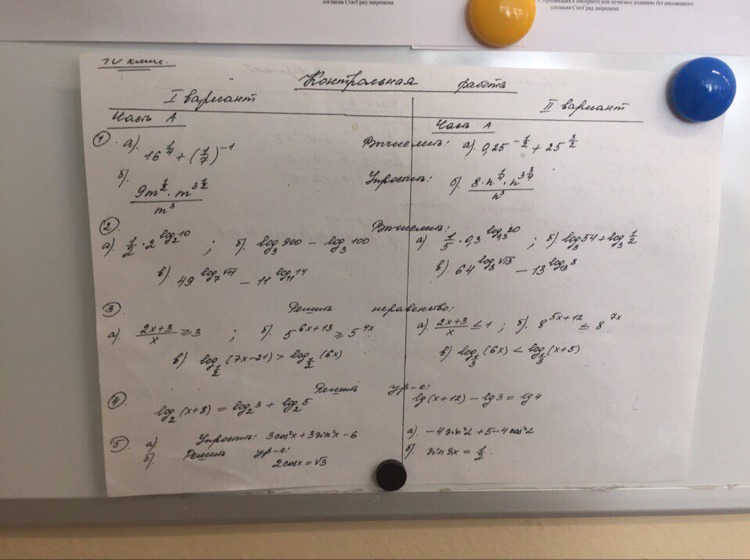 согласия СтатГрад запрещена
Публикация в интернете или печатных изданиях без письменного
согласия СтатГрад запрещена
IV класс.
Контрольная работа
I вариант
II вариант
Часть А
Часть А
① а) 16^{1/4} + (1/7)^{-1}
Вычислить: а) 0,25^{-1/2} + 25^{3/2}
б) 9m^{1/2} · m^{3 1/2} / m^3
Упростить: б) 8·n^{1/4} · n^{3 3/4} / n^3
② Вычислить:
а) 1/2 · 2^{log_2 10} ; б) log_3 900 − log_3 100
а) 1/5 · 0,3^{log_{0,3} 20} ; б) log_3 54 + log_3 1/2
в) 49^{log_7 √11} − 11^{log_11 14}
в) 64^{log_8 √13} − 13^{log_13 8}
③ Решить неравенство:
а) 2x+3 / x ≥ 3 ; б) 5^{6x+13} ≥ 5^{4x}
а) 2x+3 / x ≤ 1 ; б) 8^{5x+12} ≤ 8^{7x}
в) log_{1/2} (7x−21) > log_{1/2} (6x)
в) log_{1/3} (6x) < log_{1/3} (x+5)
④ Решить ур-е:
log_2 (x+8) = log_2 3 + log_2 5
lg(x+12) − lg3 = lg4
⑤ а) Упростить: 3cos²x + 3sin²x − 6
а) −4sin²α + 5 − 4cos²α
б) Решить ур-е:
2cosx = √3
б) sin3x = 1/2